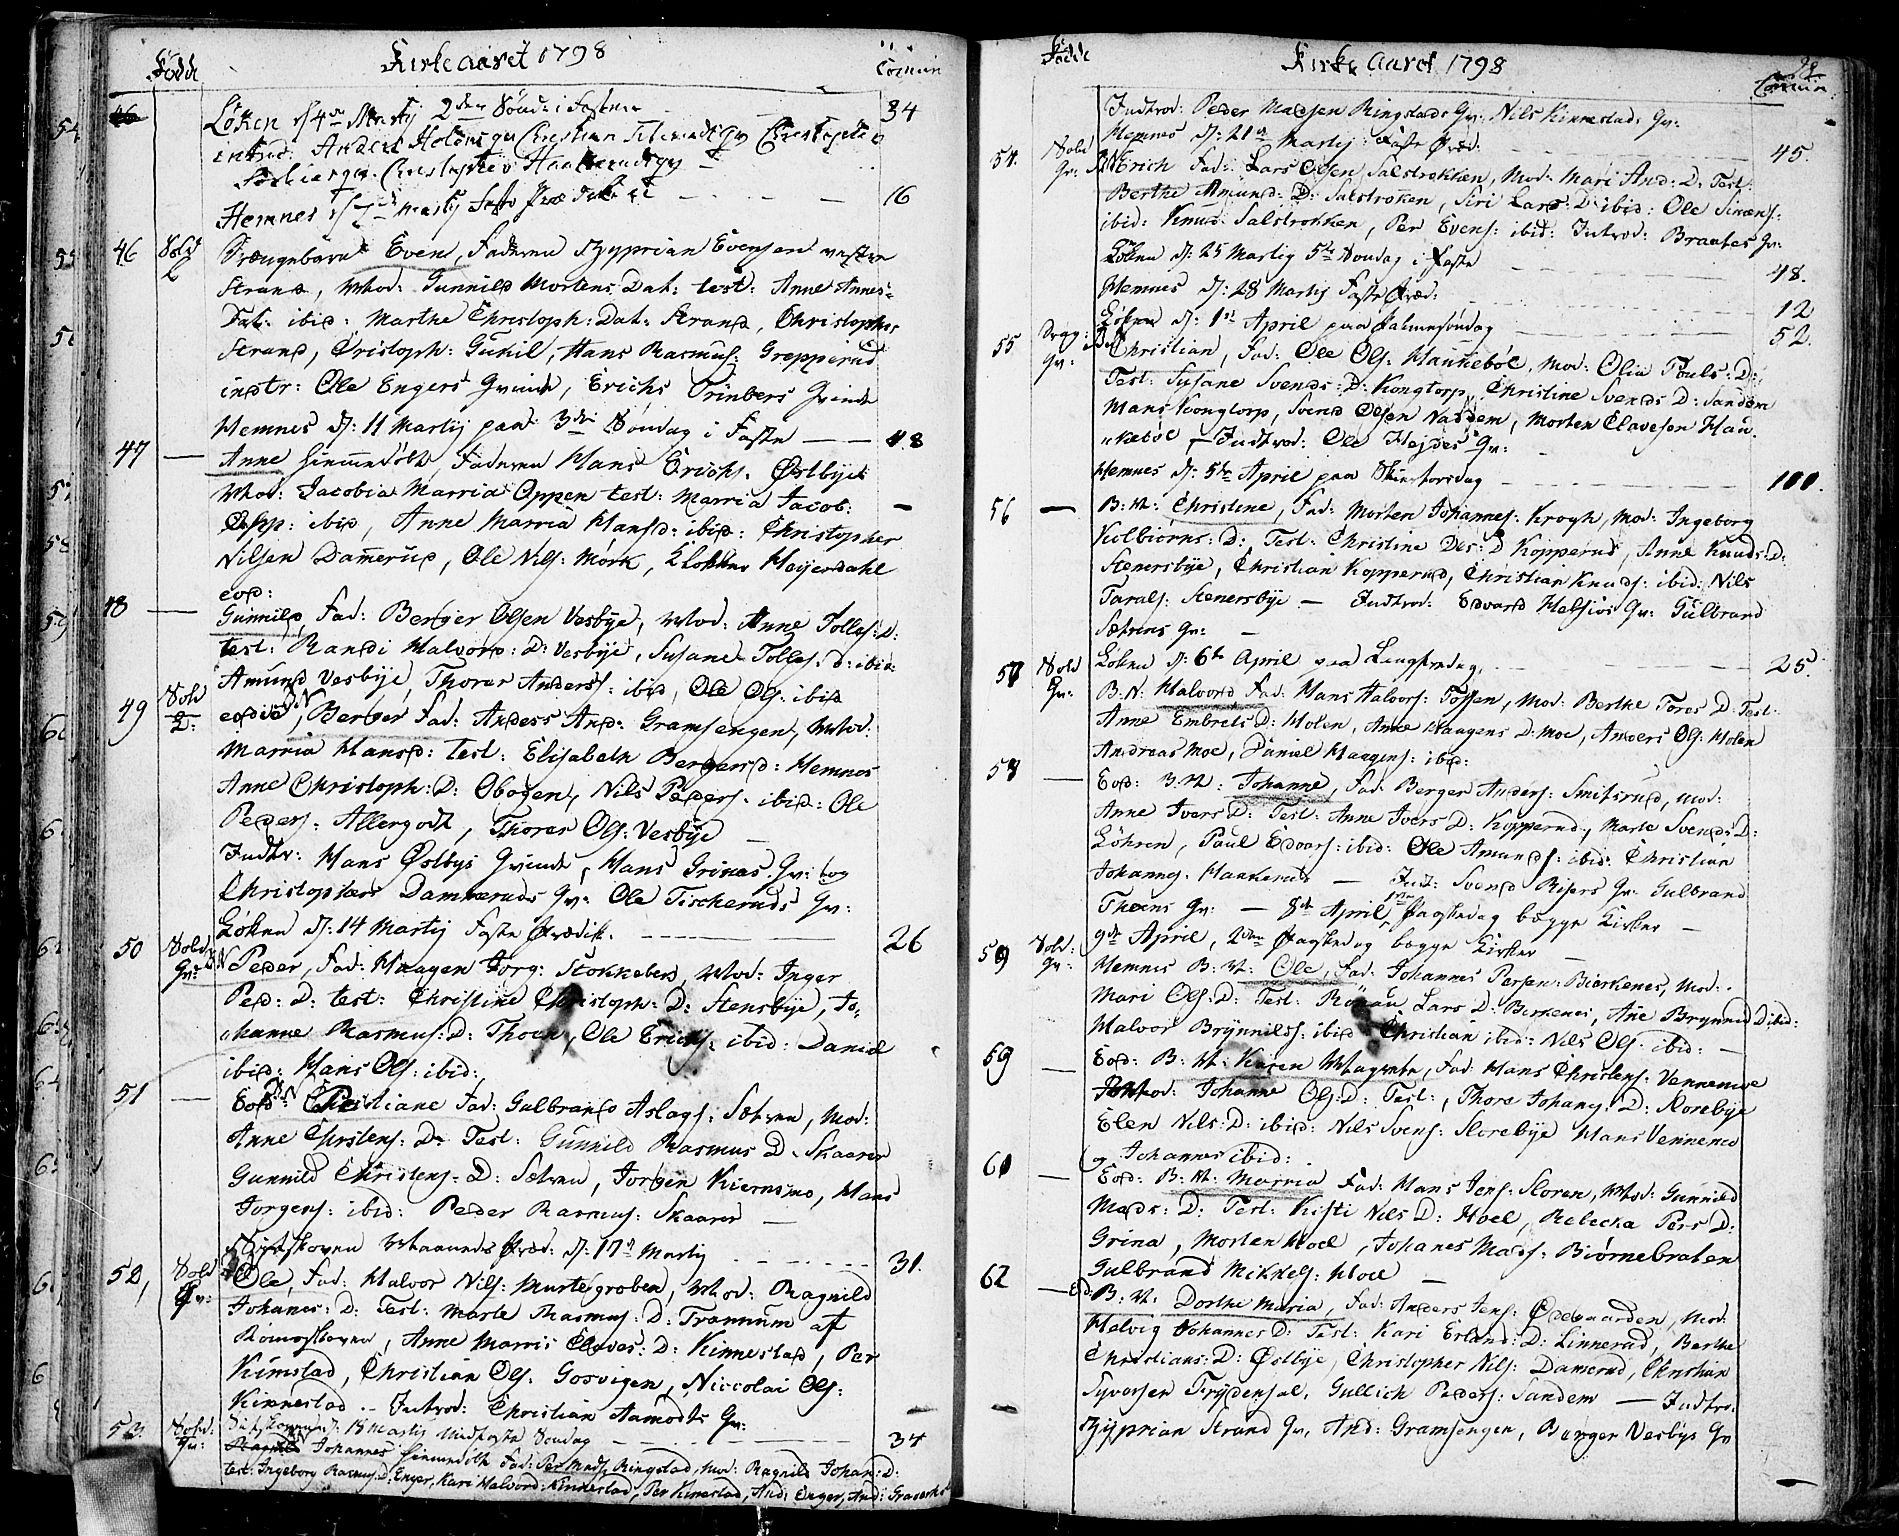 Fødde Kirke aaret 1798 Comun
46 Løken d: 4de Martij 2den Sønd: i Fasten 34
introd: Anders Holøns qv Christian Qv Christopher
qv: Christopher Haakeruds qv
Hemnes d: 7 Martij Faste Prædiken 16
46 Sold Drængebarn Even, Faderen Zyprian Evensen vestre
Strand, Mod: Gunnild Mortens Dat: test: Anne Annes
Dat: ibid: Marthe Christoph: Dat: Strand, Christopher
Strand, Cristoph: Gukil, Hans Rasmus: Grepperud
instr: Ole Engers Qvinde, Erichs Trinbers Qvinde
Hemnes d: 11 Martij paa 3die Søndag i Faste 48
47 — Anne hiemmedøbt, Faderen Hans Erichs. Østbye
Mod: Jacobia Marria Oppen test: Marria Jacob: —
Opp: ibid, Anne Marria Hansd: ibid: Christopher
Nilsen Damerud, Ole Nils: Mørk, Klokker Heyerdahl
eod:
48 — Gunnild, Fad: Berger Olsen Vesbye, Mod: Anne Tolles: D:
test: Randi Halvors: D: Vesbye, Susane Tolles: D: ibid:
Amund Vesbye, Thorer Anders: ibid, Ole Ols: ibid
49 Sold 2: eodie BN, Berger Fad: Anders And: Gramsengen, Mod:
Marria Hansd: test: Elisabeth Bergersd: Hemnes
Anne Christoph: D: Obogen, Nils Peders. ibid: Ole
Peders: Allergodt, Thorer Ols: Vesbye —
Indtr: Hans Østbys Qvinde, Hans Grinas Qv: og
Christophers Dameruds Qv: Ole Tischeruds Qv:
Løken d: 14 Martij Faste Prædik. 26
50 Sold: Qv: BN Peder, Fad: Haagen Jørg: Stokkebæk, Mod: Inger
Ped: D: test: Christine Christoph: D: Stensbye, Jo-
hanne Rasmus: D: Thoen, Ole Erichs: ibid: Daniel
ibid: Hans Ols: ibid:
51 — Eod: BN Christiane Fad: Gulbrand Aslags: Sætren, Mod:
Anne Christens: D: Test: Gunnild Rasmus D: Skaarer
Gunnild Christens: D: Sætren, Jorgen Kiernsmo, Hans
Jorgens: ibid: Peder Rasmus: Skaarer —
Maaneds Præd: d: 17de Martij 31.
52, Sold Qv: BN Ole, Fad: Halvor Nils: Murtegroben, Mod: Ragnild
Johanes: D: Test: Marte Rasmus: D: Trannum af
Rømoskoven, Anne Marris Claves: D: Kinnestad, Per
Kimstad, Christian Ols: Gosvigen, Niccolai Ols:
Kinnestad -- Introd: Christian Aamodts Qv:
53 Sold: Qv: d: 18 Martij Midfaste Søndag 34
Johannes hiemmedøbt Fad: Per Mads. Ringstad, Mod: Ragnild Johan: D:
test: Ingeborg Rasmus: D: Enger, Kari Halvord: Kinnestad, Per Kinestad, And: Enger, And: Graverhs
Fødde Kirke aaret 1798 Comun:
Indtrod: Peder Madsen Ringstads Qv: Nils Kinnestads Qv:
Hemnes d: 21de Martij: Faste Præd: 45.
54. Sold Qv: BN Erich Fad: Lars Olsen Salstrokken, Mod: Mari And: D: Test:
Berthe Amund: D: Salstroken, Siri Lars: D: ibid: Ole Simens:
ibid: Knud Salstrokken, Per Evens: ibid: Introd: Braates Qv:
Løken d: 25 Martij 5te Søndag i Faste 48.
Hemnes d: 28 Martij Faste Præd: 12
Løken d: 1ste April paa Palmesøndag 52.
55 Qv: Christian, Fad: Ole Ols: Hannkebøl, Mod: Olia Pouls: D:
Test: Susane Svends: D: Kongtorp, Christine Svends D: Sandem
Hans Kongtorp, Svend Olsen Nasdem, Morten Clavesen Han
kebøl — Indtrod: Ole Hejdes Qv:
Hemnes d: 5te April paa Skiertorsdag 100.
56 — B: N: Christine, Fad: Morten Johannes: Krogh, Mod: Ingeborg
Kolbiørns: D: Test: Christine Des: D Kopperud, Anne Knuds: D:
Stenersbye, Christian Kopperud, Christian Knuds: ibid: Nils
Tarals: Stenersbye — Indtrod: Edvard Helsiøs Qv: Gulbrand
Sætrens Qv: —
57 Sold Qv: Løken d: 6te April paa Langfredag 25.
B: N: Halvord Fad: Hans Halvors: Tossen, Mod: Berthe Tores D: Test:
Anne Embrets D: Holen, Anne Haagens D: Moe, Anders Ols: Holen
Andreas Moe, Daniel Haagens: ibid:
58 — Eod: B: N: Johanne, Fad: Berger Anders: Smitsrud, Mod:
Anne Ivers D: Test: Anne Ivers D: Kopperud, Marte Svends: D:
Løhren, Paul Edvars: ibid: Ole Amunds: ibid: Christian
Johannes: Haakerud — Indt: Svend Risers Qv: Gulbrand
Thoens Qv: — 8de April, 1ste Paaskedag begge Kirker —
59 Sold: Qv: 9de April, 2den Paaskedag begge Kirker —
Hemnes B: N: Ole, Fad: Johannes Persen: Bierkenes, Mod:
Mari Ols: D: Test: Lars D: Berkenes, Ane Brynnild D ibid:
Halvor Brynnilds: ibid Christian ibid: Nils Ols: ibid: —
59 — Eod: B: N: Karen Magrete, Fad: Hans Christens: Vennemoe
Mod: Johanne Ols: D: Test:, Thore Johans: D: Slorebye
Elen Nils: D: ibid: Nils Svens: Slorebye Hans Vennemo
og Johannes ibid:
61 — Eod: B: N: Marria Fad: Hans Jens: Sloren, Mod: Gunnild
Mads: D: Test: Kisti Nils D: Hoel, Rebecka Pers D:
Grina, Morten Hoel, Johanes Mads: Biørnebraten
Gulbrand Mikkels: Hoel —
62 — Ed: B: N: Dorthe Maria, Fad: Anders Jens: Ødegaarden, Mod:
Helvig Johannes D: Test: Kari Erland: D: Linnerud, Berthe
Christians: D: Østbye, Christopher Nils: Damerud, Christian
Syversen Frydensal, Gullich Peders: Sandem — Indtro:
Zyprian Strand Qv, And: Gramsengen, Berger Vesbys Qv